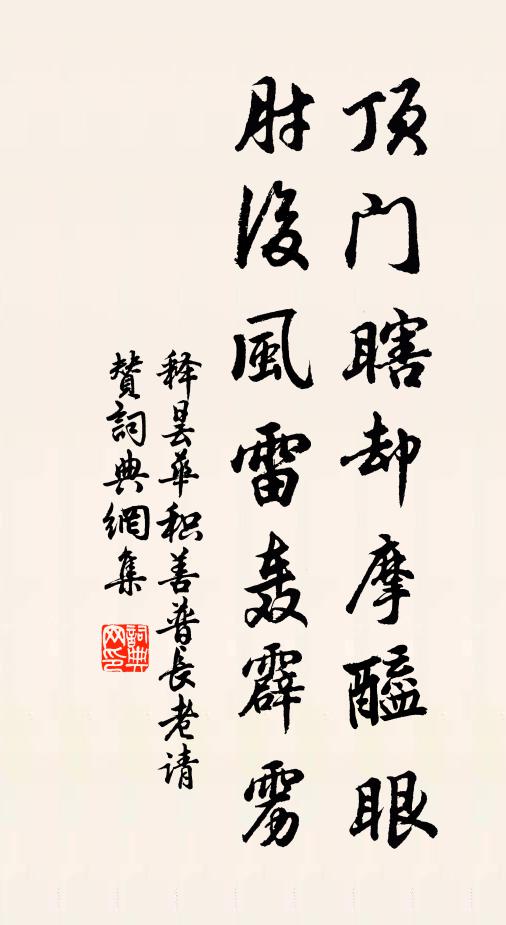 顶门瞎却摩醯眼
肘後風雷轰霹雳
释昙华积善普长老请
贊詞典網集
詞典
网印